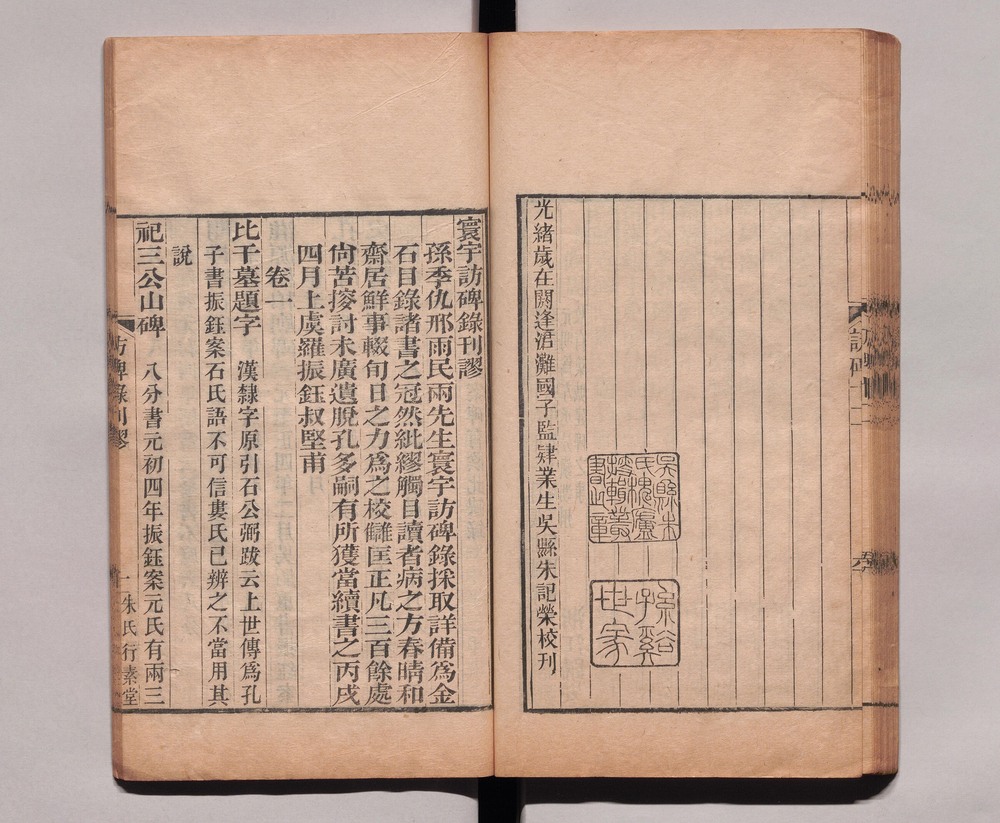 光緒歲在閼逢涒灘國子監肄業生吳縣朱記榮校刊
吳縣朱
氏槐廬
叢書之章
孫谿
世家
寰宇訪碑錄刊謬
孫季仇邢雨民兩先生寰宇訪碑錄採取詳備爲金
石目錄諸書之冠然紕繆觸目讀者病之方春晴和
齋居鮮事輟旬日之力爲之校讎匡正凡三百餘處
尙苦搜討未廣遺脫孔多嗣有所獲當續書之丙戌
四月上虞羅振鈺叔堅甫
卷一
比干墓題字 漢隸字原引石公弼跋云上世傳爲孔
子書振鈺案石氏語不可信婁氏已辨之不當用其
說
祀三公山碑 八分書元初四年振鈺案元氏有兩三
訪碑錄刊謬
一
朱氏行素堂